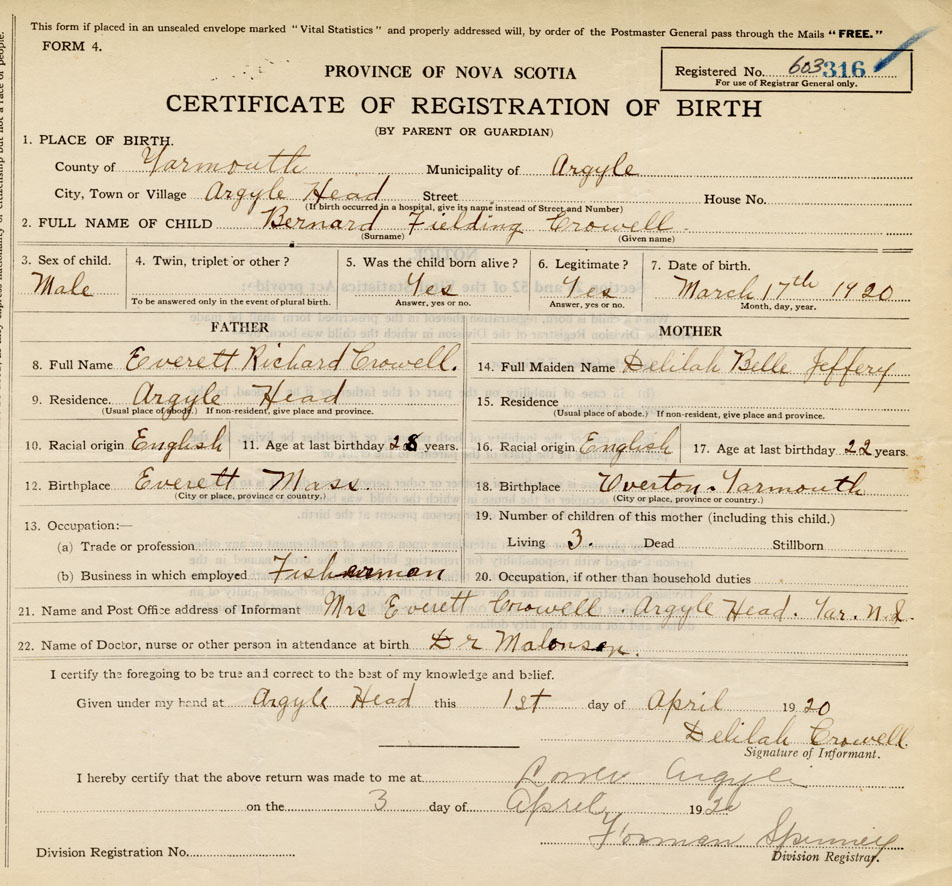 This form if placed in an unsealed envelope marked "Vital Statistics" and properly addressed will, by order of the Postmaster General pass through the Mails "FREE."
FORM 4.
Registered No. 603 316
For use of Registrar General only.
PROVINCE OF NOVA SCOTIA
CERTIFICATE OF REGISTRATION OF BIRTH
(BY PARENT OR GUARDIAN)
1. PLACE OF BIRTH.
County of Yarmouth Municipality of Argyle
City, Town or Village Argyle Head Street House No.
(If birth occurred in a hospital, give its name instead of Street and Number)
2. FULL NAME OF CHILD Bernard Fielding Crowell
(Surname) (Given name)
3. Sex of child. 4. Twin, triplet or other? 5. Was the child born alive? 6. Legitimate? 7. Date of birth.
Male Yes Yes March 17th 1920
To be answered only in the event of plural birth. Answer, yes or no. Answer, yes or no. Month, day, year.
FATHER MOTHER
8. Full Name Everett Richard Crowell. 14. Full Maiden Name Delilah Belle Jeffery
9. Residence. Argyle Head 15. Residence
(Usual place of abode.) If non-resident, give place and province. (Usual place of abode.) If non-resident, give place and province.
10. Racial origin English 11. Age at last birthday 28 years. 16. Racial origin English 17. Age at last birthday 22 years.
12. Birthplace Everett Mass 18. Birthplace Overton. Yarmouth
(City or place, province or country.) (City or place, province or country.)
13. Occupation:— 19. Number of children of this mother (including this child.)
(a) Trade or profession Living 3. Dead Stillborn
(b) Business in which employed Fisherman 20. Occupation, if other than household duties
21. Name and Post Office address of Informant Mrs Everett Crowell. Argyle Head. Yar. N.S.
22. Name of Doctor, nurse or other person in attendance at birth Dr Malonson.
I certify the foregoing to be true and correct to the best of my knowledge and belief.
Given under my hand at Argyle Head this 1st day of April 1920
Delilah Crowell
Signature of Informant.
I hereby certify that the above return was made to me at Lower Argyle
on the 3 day of April 1920
Forman Spinney
Division Registration No. Division Registrar.